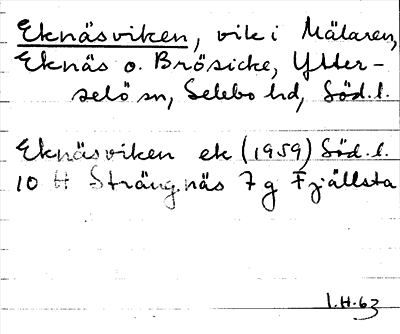 Eknäsviken, vik i Mälaren,
Eknäs o. Brösicke, Ytter-
selö sn, Selebo hd, Söd.l.
Eknäsviken ek (1959) Söd.l.
10 H Strängnäs 7 g Fjällsta
I.H.63